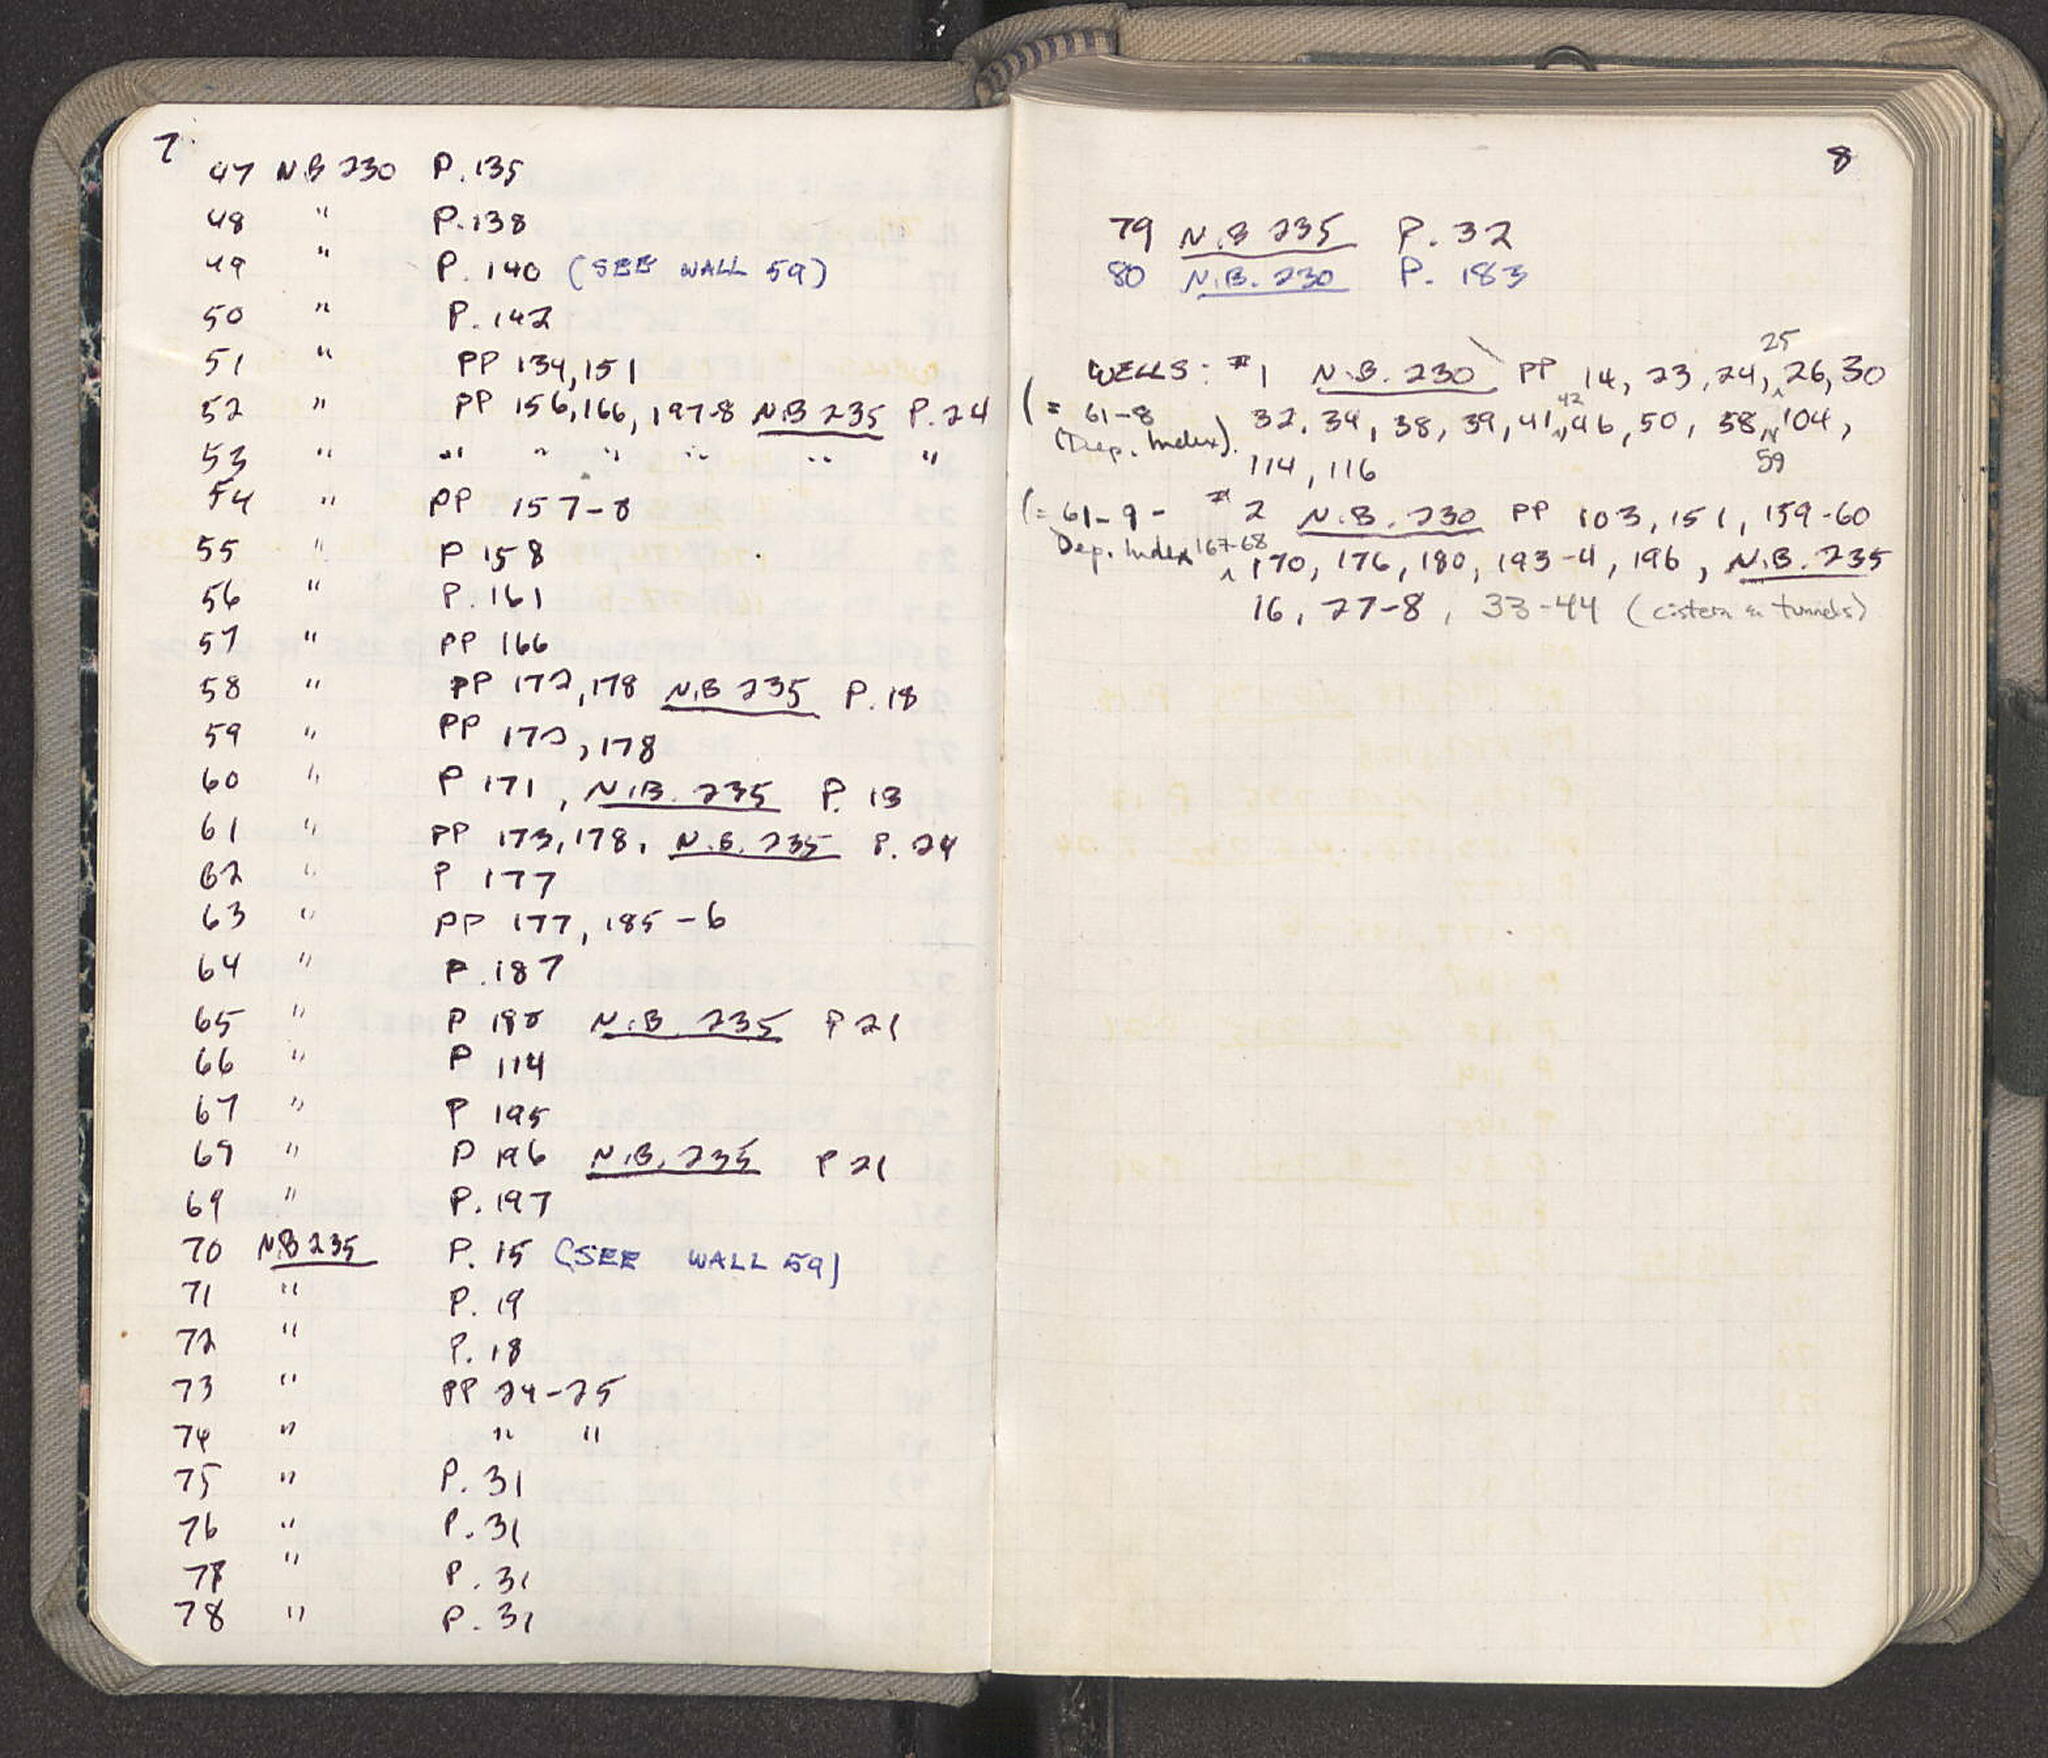 7
47 N.B 230 P. 135
48 " P. 138
49 " P. 140 (SEE WALL 59)
50 " P. 142
51 " PP 134, 151
52 " PP 156, 166, 197-8 N.B 235 P. 24
53 " " " " " " "
54 " PP 157-8
55 " P 158
56 " P. 161
57 " PP 166
58 " PP 172, 178 N.B 235 P. 18
59 " PP 172, 178
60 " P 171, N.B. 235 P. 13
61 " PP 173, 178, N.B. 235 P. 24
62 " P 177
63 " PP 177, 185-6
64 " P. 187
65 " P N.B. 235 P 21
66 " P 114
67 " P 195
69 " P 196 N.B. 235 P 21
69 " P. 197
70 N.B 235 P. 15 (SEE WALL 59)
71 " P. 19
72 " P. 18
73 " PP 24-25
74 " " "
75 " P. 31
76 " P. 31
77 " P. 31
78 " P. 31
8
79 N.B 235 P. 32
80 N.B. 230 P. 183
25
WELLS: #1 N.B. 230 PP 14, 23, 24, 26, 30
(= 61-8 32, 34, 38, 39, 41, 42 46, 50, 58, 104,
(Dep. Index). 114, 116 59
(= 61-9- #2 N.B. 230 PP 103, 151, 159-60
Dep. Index 167-68 170, 176, 180, 193-4, 196, N.B. 235
16, 27-8, 33-44 (cistern & tunnels)